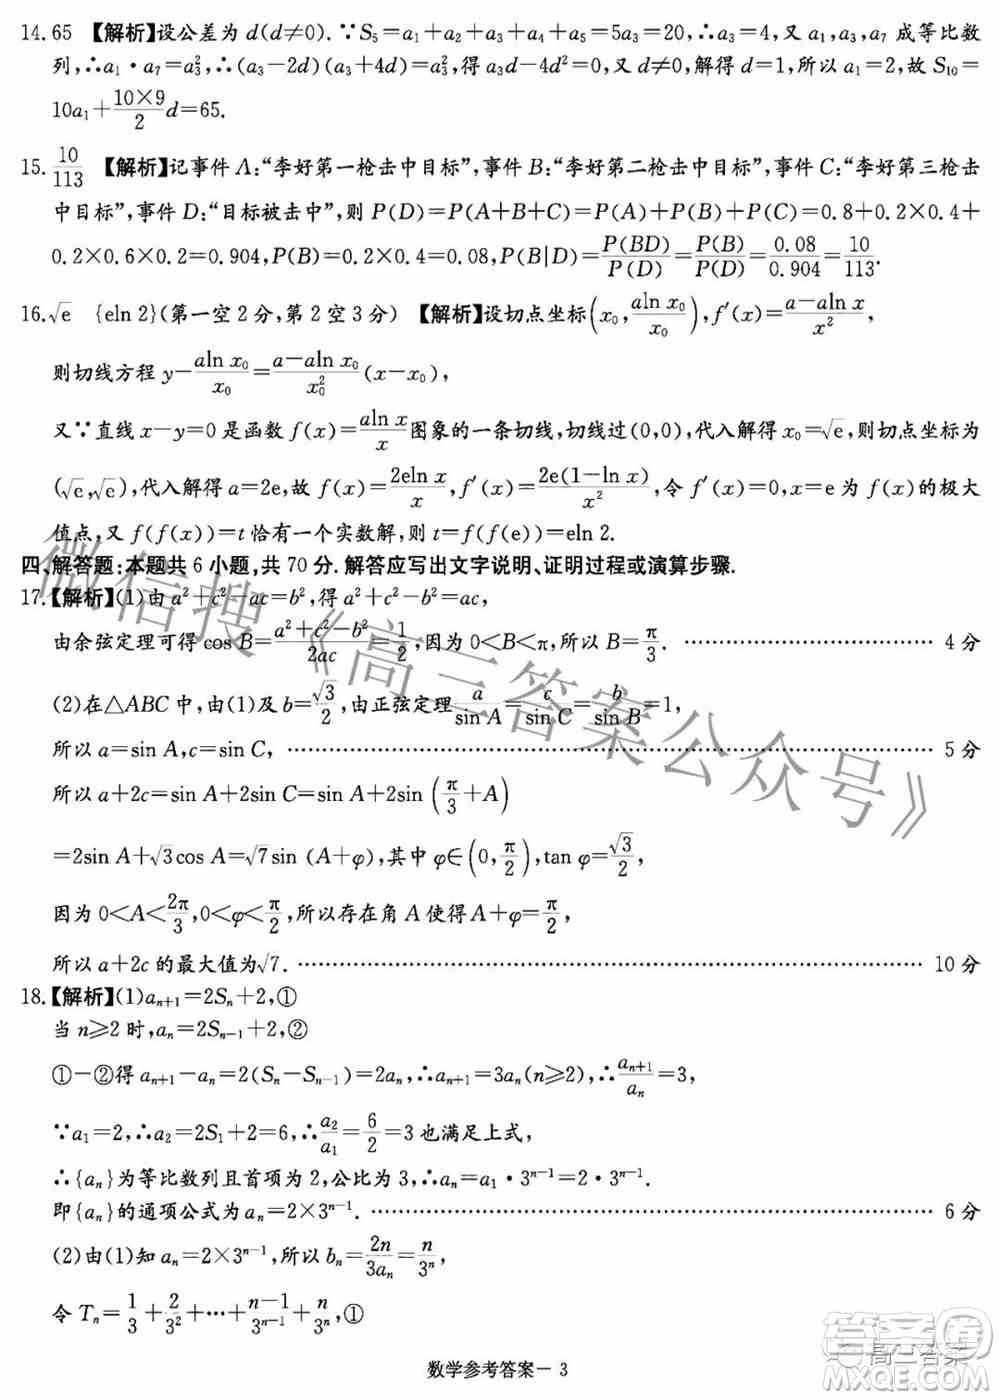 14.65 【解析】设公差为 d(d≠0).∵S₅=a₁+a₂+a₃+a₄+a₅=5a₃=20,∴a₃=4,又 a₁,a₃,a₇ 成等比数
列,∴a₁·a₇=a₃²,∴(a₃-2d)(a₃+4d)=a₃²,得 a₃d-4d²=0,又 d≠0,解得 d=1,所以 a₁=2,故 S₁₀=
10a₁+\frac{10×9}{2}d=65.
15.\frac{10}{113} 【解析】记事件 A:“李好第一枪击中目标”,事件 B:“李好第二枪击中目标”,事件 C:“李好第三枪击
中目标”,事件 D:“目标被击中”,则 P(D)=P(A+B+C)=P(A)+P(B)+P(C)=0.8+0.2×0.4+
0.2×0.6×0.2=0.904,P(B)=0.2×0.4=0.08,P(B|D)=\frac{P(BD)}{P(D)}=\frac{P(B)}{P(D)}=\frac{0.08}{0.904}=\frac{10}{113}.
16.√e {eln 2}(第一空2分,第2空3分) 【解析】设切点坐标(x₀,\frac{aln x₀}{x₀}),f′(x)=\frac{a-aln x}{x²},
则切线方程 y-\frac{aln x₀}{x₀}=\frac{a-aln x₀}{x₀²}(x-x₀),
又∵直线 x-y=0 是函数 f(x)=\frac{aln x}{x}图象的一条切线,切线过(0,0),代入解得 x₀=√e,则切点坐标为
(√e,√e),代入解得 a=2e,故 f(x)=\frac{2eln x}{x},f′(x)=\frac{2e(1-ln x)}{x²},令 f′(x)=0,x=e 为 f(x)的极大
值点,又 f(f(x))=t 恰有一个实数解,则 t=f(e)=eln 2.
四、解答题:本题共 6 小题,共 70 分.解答应写出文字说明、证明过程或演算步骤.
17.【解析】(1)由 a²+c²-ac=b²,得 a²+c²-b²=ac,
由余弦定理可得 cos B=\frac{a²+c²-b²}{2ac}=\frac{1}{2},因为 0<B<π,所以 B=\frac{π}{3}. …… 4 分
(2)在△ABC 中,由(1)及 b=\frac{√3}{2},由正弦定理\frac{a}{sin A}=\frac{c}{sin C}=\frac{b}{sin B}=1,
所以 a=sin A,c=sin C, …… 5 分
所以 a+2c=sin A+2sin C=sin A+2sin(\frac{π}{3}+A)
=2sin A+√3cos A=√7sin (A+φ),其中 φ∈(0,\frac{π}{2}),tan φ=\frac{√3}{2},
因为 0<A<\frac{2π}{3},0<φ<\frac{π}{2},所以存在角 A 使得 A+φ=\frac{π}{2},
所以 a+2c 的最大值为√7. …… 10 分
18.【解析】(1)aₙ₊₁=2Sₙ+2,①
当 n≥2 时,aₙ=2Sₙ₋₁+2,②
①-②得 aₙ₊₁-aₙ=2(Sₙ-Sₙ₋₁)=2aₙ,∴aₙ₊₁=3aₙ(n≥2),∴\frac{aₙ₊₁}{aₙ}=3,
∵a₁=2,∴a₂=2S₁+2=6,∴\frac{a₂}{a₁}=\frac{6}{2}=3 也满足上式,
∴{aₙ}为等比数列且首项为 2,公比为 3,∴aₙ=a₁·3ⁿ⁻¹=2·3ⁿ⁻¹.
即{aₙ}的通项公式为 aₙ=2×3ⁿ⁻¹. …… 6 分
(2)由(1)知 aₙ=2×3ⁿ⁻¹,所以 bₙ=\frac{2n}{3aₙ}=\frac{n}{3ⁿ},
令 Tₙ=\frac{1}{3}+\frac{2}{3²}+…+\frac{n-1}{3ⁿ⁻¹}+\frac{n}{3ⁿ},①
数学参考答案-3
微信搜《高三答案公众号》
高三答案
答案圈
MXQE.COM